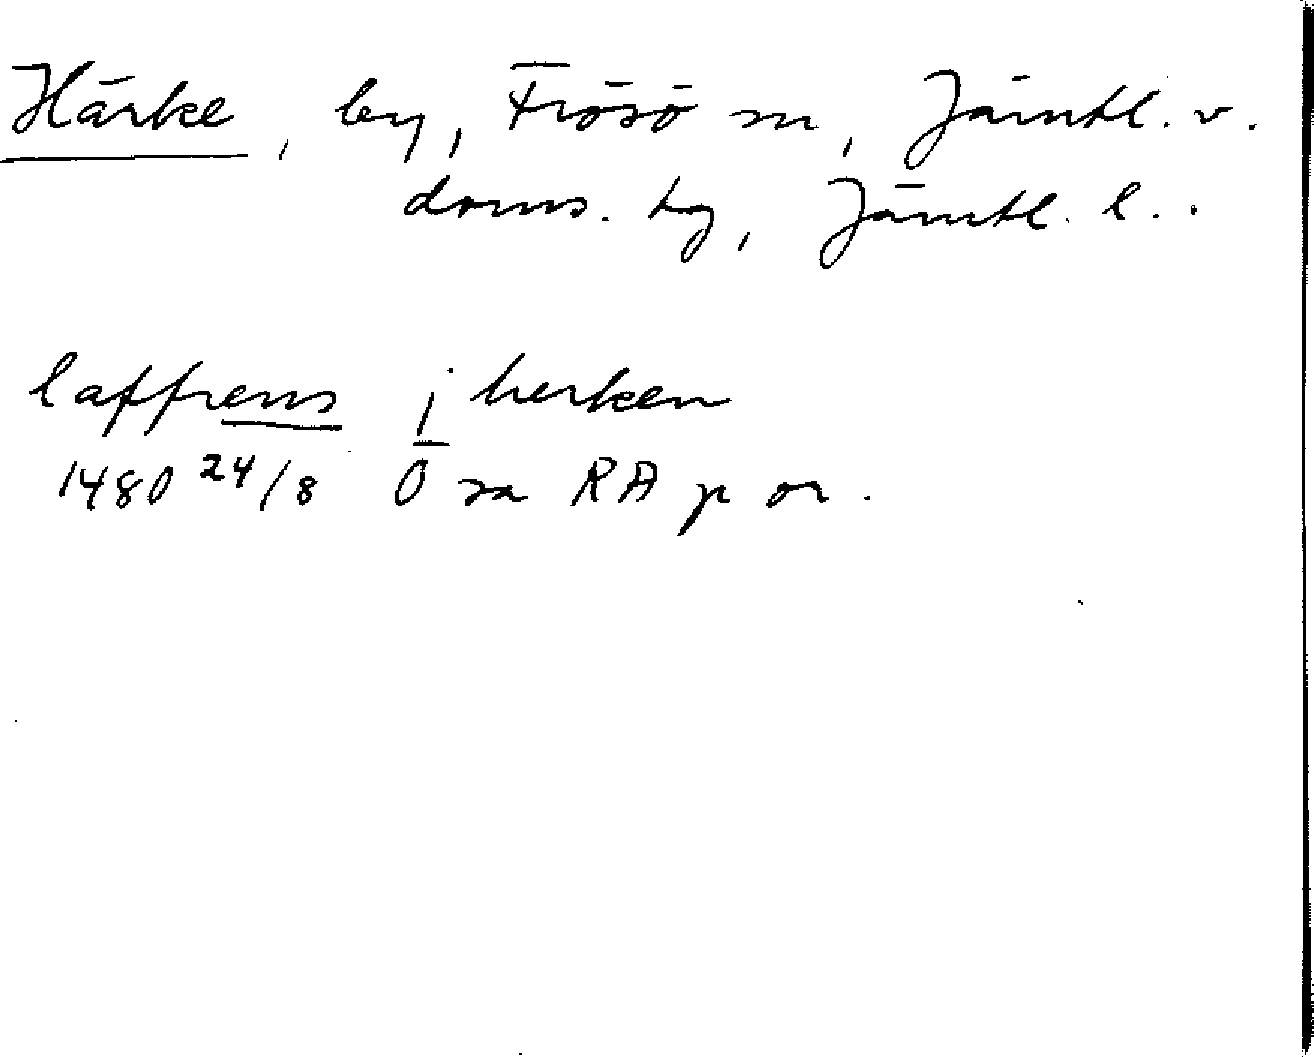 Härke, by, Frösö sn, Jämtl. v.
doms. tg, Jämtl. l.
laffrens j herken
1480 24/8 Ö sa RA p or.